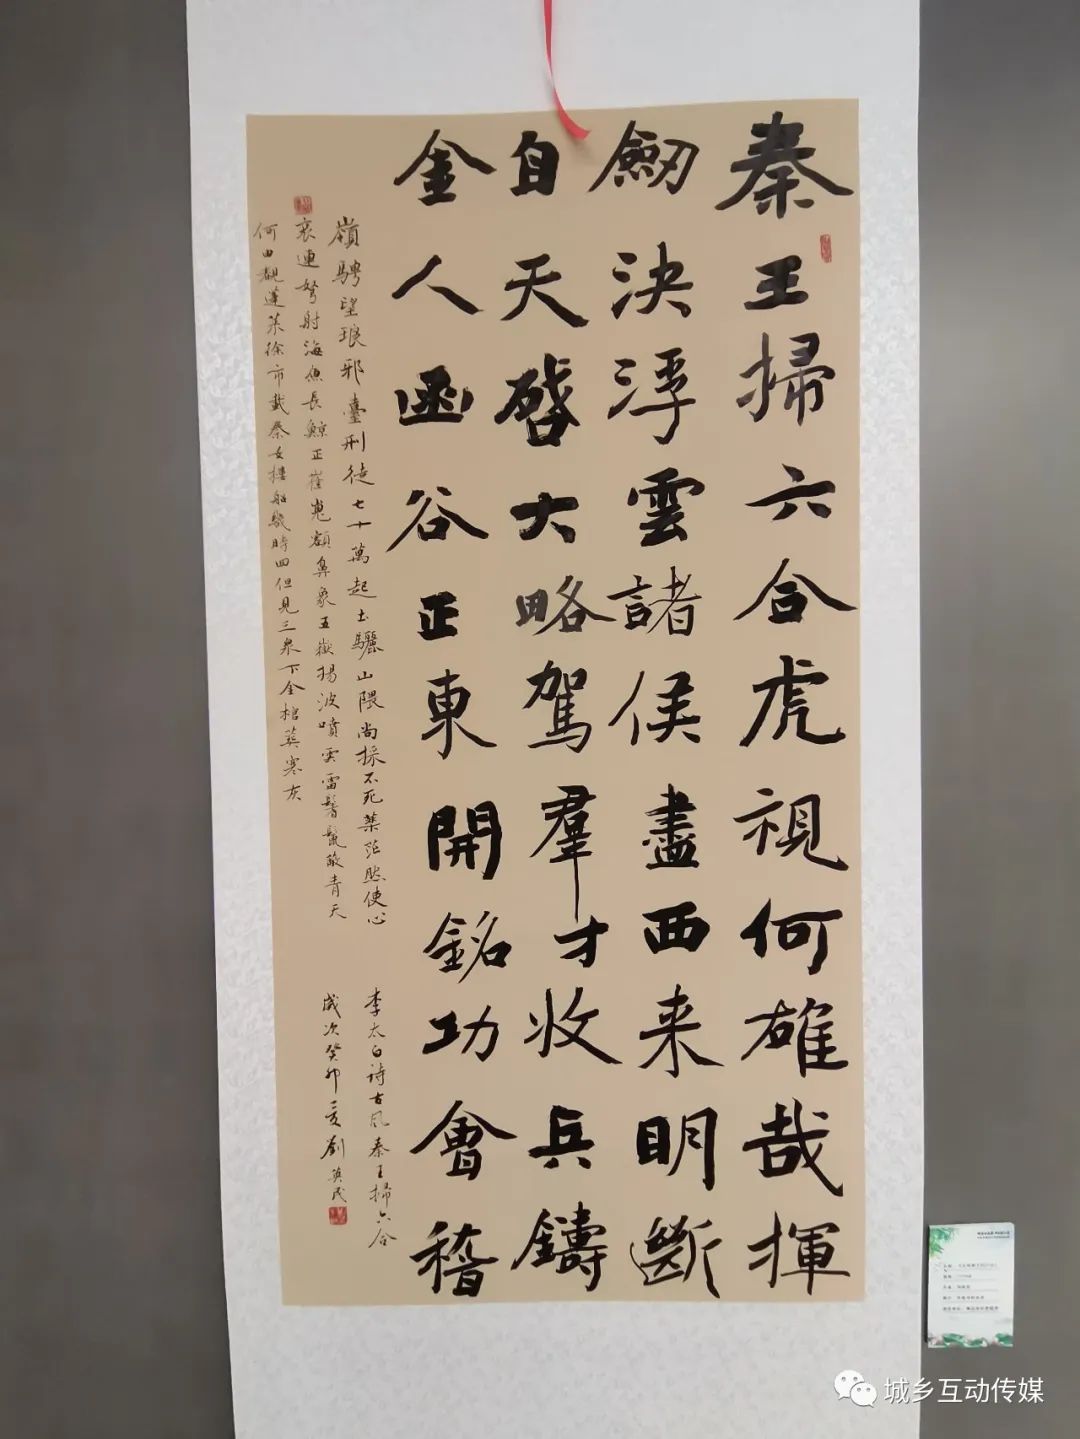 秦王掃六合虎視何雄哉揮
劒決浮雲諸侯盡西来明斷
自天啓大略駕羣才收兵鑄
金人函谷正東開銘功會稽
嶺騁望琅邪臺刑徒七十萬起土驪山隈尚採不死藥茫然使心
哀連弩射海魚長鯨正崔嵬額鼻象五嶽揚波噴雲雷鬐鬣蔽青天
何由覩蓬萊徐巿載秦女樓船幾時回但見三泉下金棺葬寒灰
李太白诗古风秦王掃六合
歲次癸卯夏劉英民
城乡互动传媒